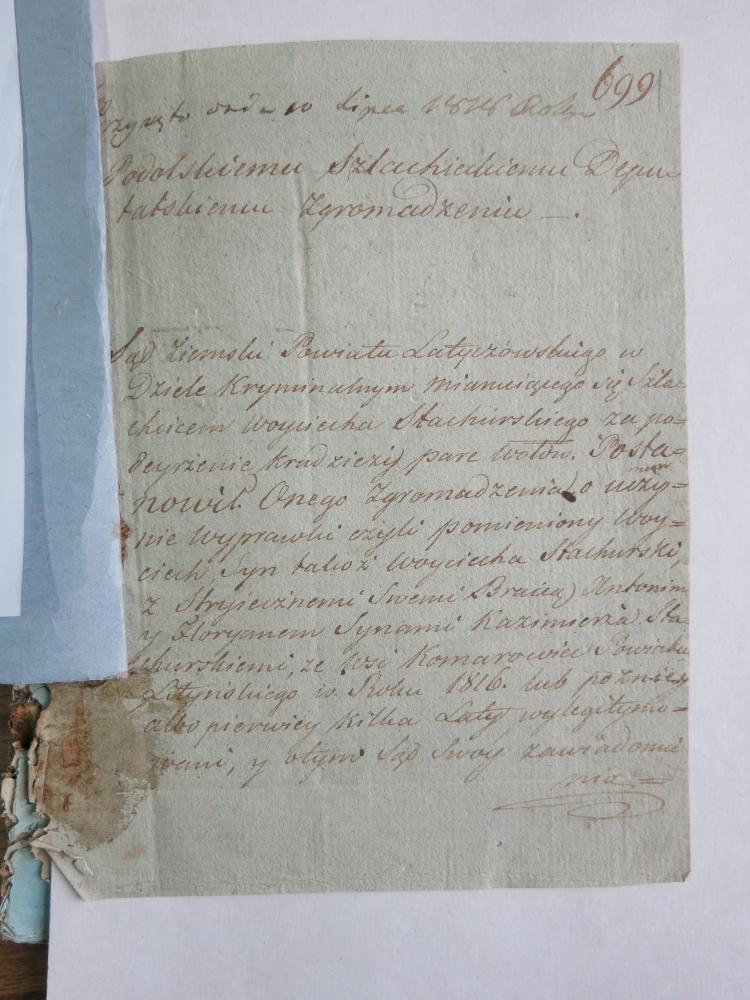 699
Przyięto dnia 10 Lipca 1818 Roku
Podolskiemu Szlachieckiemu Depu
tatskiemu Zgromadzeniu —.
Sąd Ziemski Powiatu Latyczowskiego w
Dziele Kryminalnym mianuiącego się Szla=
chcicem Woyciecha Stachurskiego za po=
deyrzenie kradzieży pare wołow. Posta=
nowił. Onego Zgromadzenia o uczy=
nie wyprawki czyli pomieniony Woy=
ciech, Syn takoż Woyciecha Stachurski,
z Stryiecznemi Swemi Bracią) Antonim
y Floryanem Synami Kazimierza Sta=
churskiemi, ze wsi Komarowiec Powiatu
Latyńskiego w Roku 1816. lub pozniey
albo pierwiey kilka Laty wylegitymo=
wani, y otym Sąd Swoy zawiadomie
nia =